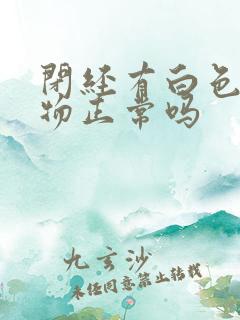 閉經有白色
物正常吗
九玄沙
未经同意禁止转载